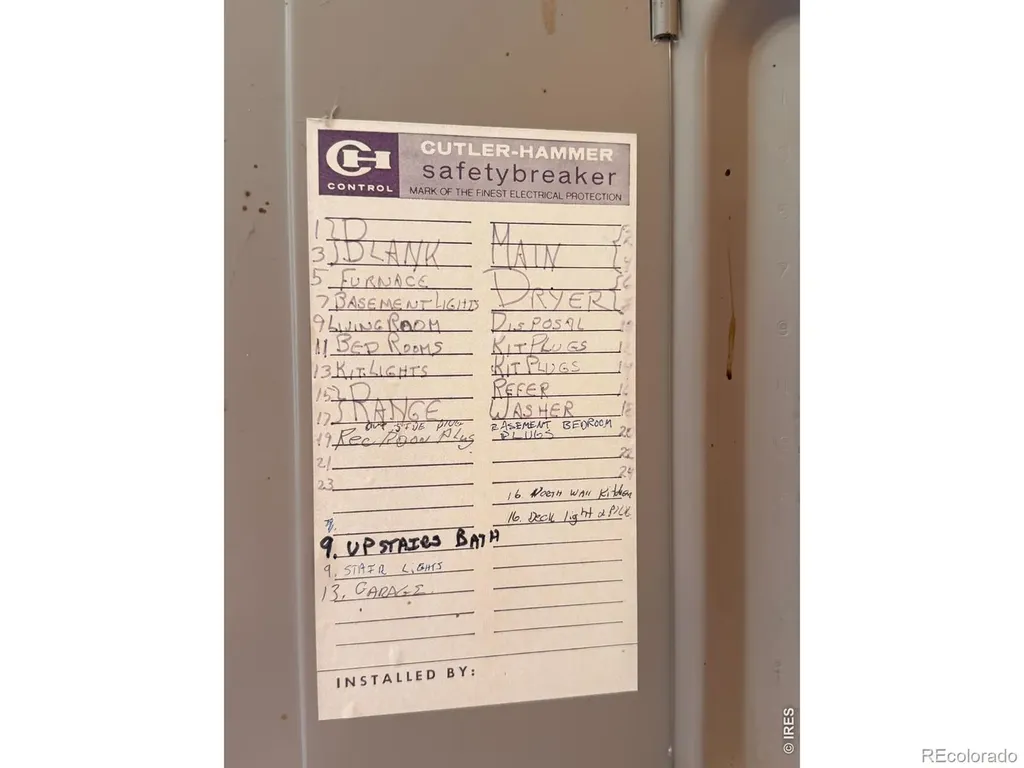 CH
CONTROL
CUTLER-HAMMER
safetybreaker
MARK OF THE FINEST ELECTRICAL PROTECTION
1
3
BLANK
5 FURNACE
7 BASEMENT LIGHTS
9 LIVING ROOM
11 BED ROOMS
13 KIT LIGHTS
15
17
RANGE
OUT SIDE PLUG
19 Rec Room Plug
21
23
9. UPSTAIRS BATH
9. STAIR LIGHTS
13. GARAGE
MAIN
DRYER
DISPOSAL
KIT PLUGS
KIT PLUGS
REFER 16
WASHER 18
BASEMENT BEDROOM
PLUGS 20
22
24
16. NORTH WALL Kitchen
16. Deck light
INSTALLED BY:
© IRES
REcolorado